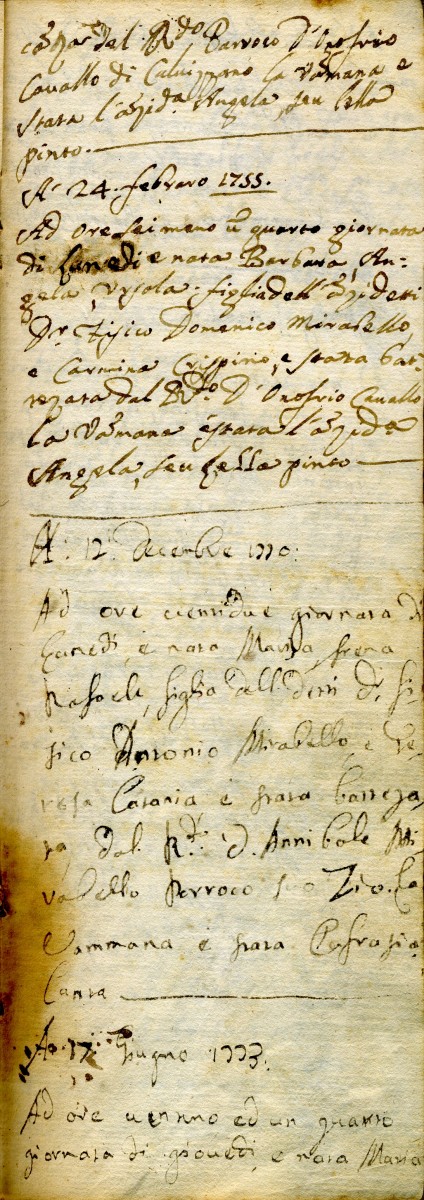 dal R.do Parroco D. Onofrio
Cavallo di Calvizzano la Vãmana e
stata l'ãpid.a Angela, seu Lella
pinto.
A' 24. febraro 1755.
Ad ore sei meno u quarto giornata
di Lunedi e nata Barbara, An-
gela, Ursola figlia dell'ãpidetti
D.r Fisico Domenico Mirabello,
e Carmina Crispino, e stata bat-
tezata dal R.do D. Onofrio Cavallo
la Vãmana é stata l'ãpid.a
Angela, seu Lella pinto
A: 12: Decembre 1770:
Ad ore ventidue giornata di
Lunedi, e nata Maria,
Rafaela, figlia dell'detti D. Fi-
sico Antonio Mirabello, e Te-
resa Catania e stata batteza-
ta dal R.do D. Annibale Mi-
rabello Parroco suo Zio. La
Vammana e stata
A. 17: Giugno 1773:
Ad ore ventuno ed un quarto
giornata di giovedi, e nata Maria